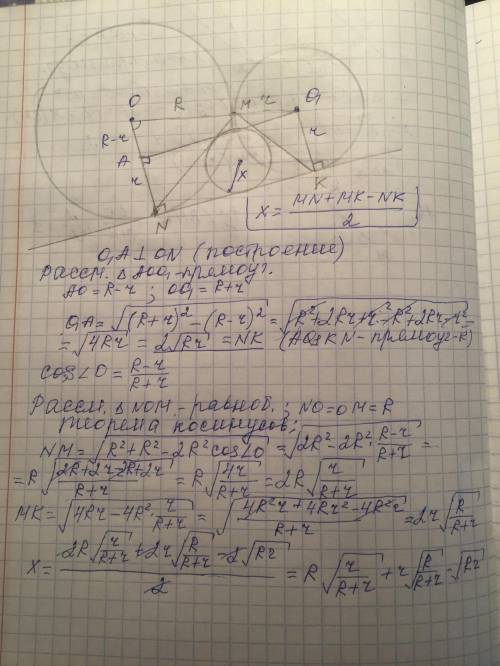 O R M r O₁
R-r
A
r r
N x K
x = (MN+MK-NK)/2
O₁A ⊥ ON (построение)
Рассм. △ AOO₁ - прямоуг.
AO = R-r ; OO₁ = R+r
O₁A = √((R+r)² - (R-r)²) = √(R²+2Rr+r²-R²+2Rr-r²)
= √4Rr = 2√Rr = NK (AO₁KN - прямоуг-к)
cos∠O = (R-r)/(R+r)
Рассм. △ NOM - равноб. ; NO=OM=R
Теорема косинусов;
NM = √(R²+R²-2R²cos∠O) = √(2R²-2R²·(R-r)/(R+r)) =
= R√((2R+2r-2R+2r)/(R+r)) = R√(4r/(R+r)) = 2R√(r/(R+r))
MK = √(4Rr-4R²·r/(R+r)) = √((4R²r+4Rr²-4R²r)/(R+r)) = 2r√(R/(R+r))
x = (2R√(r/(R+r))+2r√(R/(R+r))-2√Rr)/2 = R√(r/(R+r))+r√(R/(R+r))-√Rr